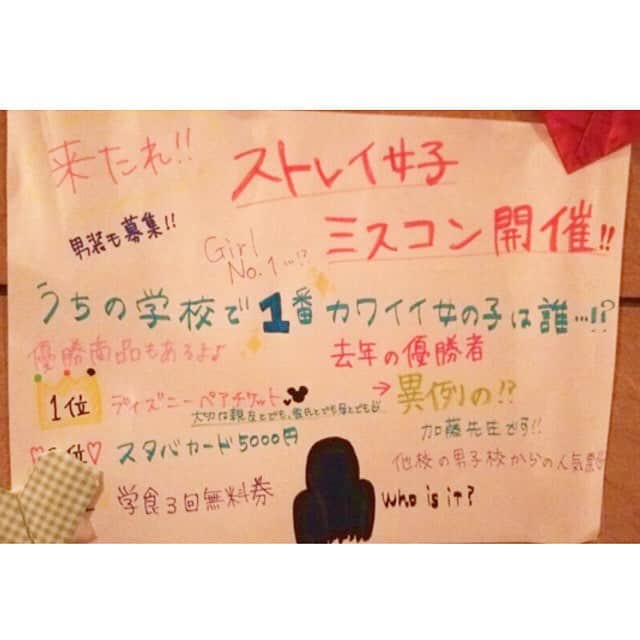 来たれ!!
ストレイ女子
ミスコン開催!!
男装も募集!!
Girl
No.1…!?
うちの学校で1番カワイイ女の子は誰…!?
優勝商品もあるよよ
去年の優勝者
1位 ディズニーペアチケット
→異例の!?
加藤先生です!!
位 スタバカード5000円
他校の男子校からの人気
学食3回無料券
who is it?